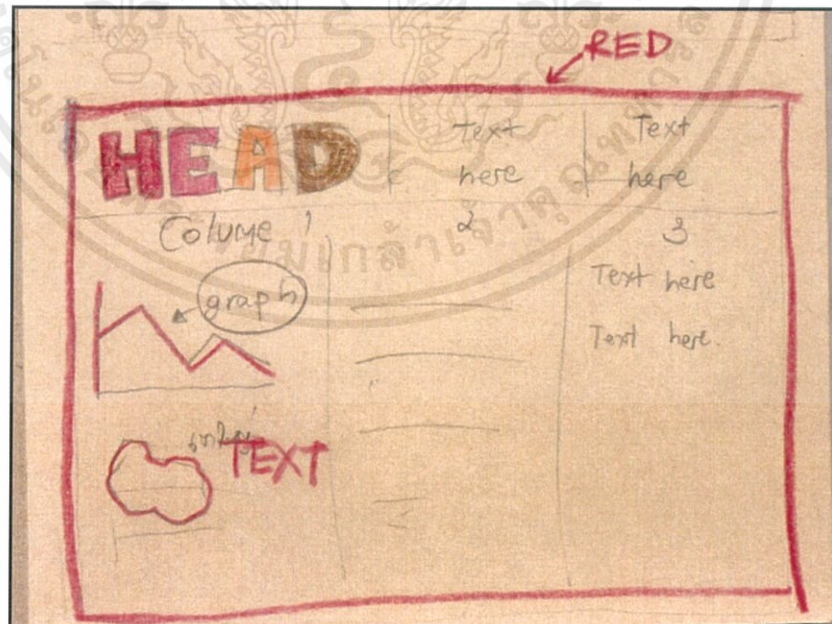 RED
HEAD
Text here
Text here
Colume 1
2
3
graph
Text here
Text here.
TEXT